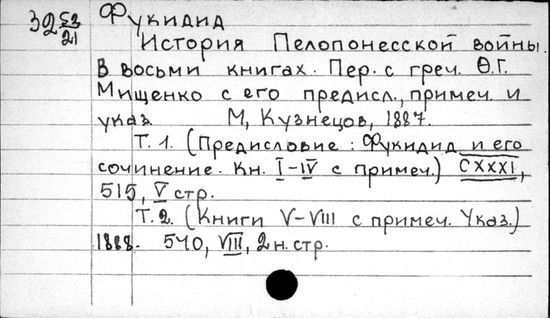 32 53/21
Фукидид
История Пелопонесской войны.
В восьми книгах. Пер. с греч. Ѳ.Г.
Мищенко с его предисл., примеч. и
указ. М, Кузнецов, 1887.
Т. 1. (Предисловие: Фукидид и его
сочинение. Кн. I-IV с примеч.) CXXXI,
515, V стр.
Т. 2. (Книги V-VIII с примеч. Указ.)
1888. 540, VIII, 2 н. стр.